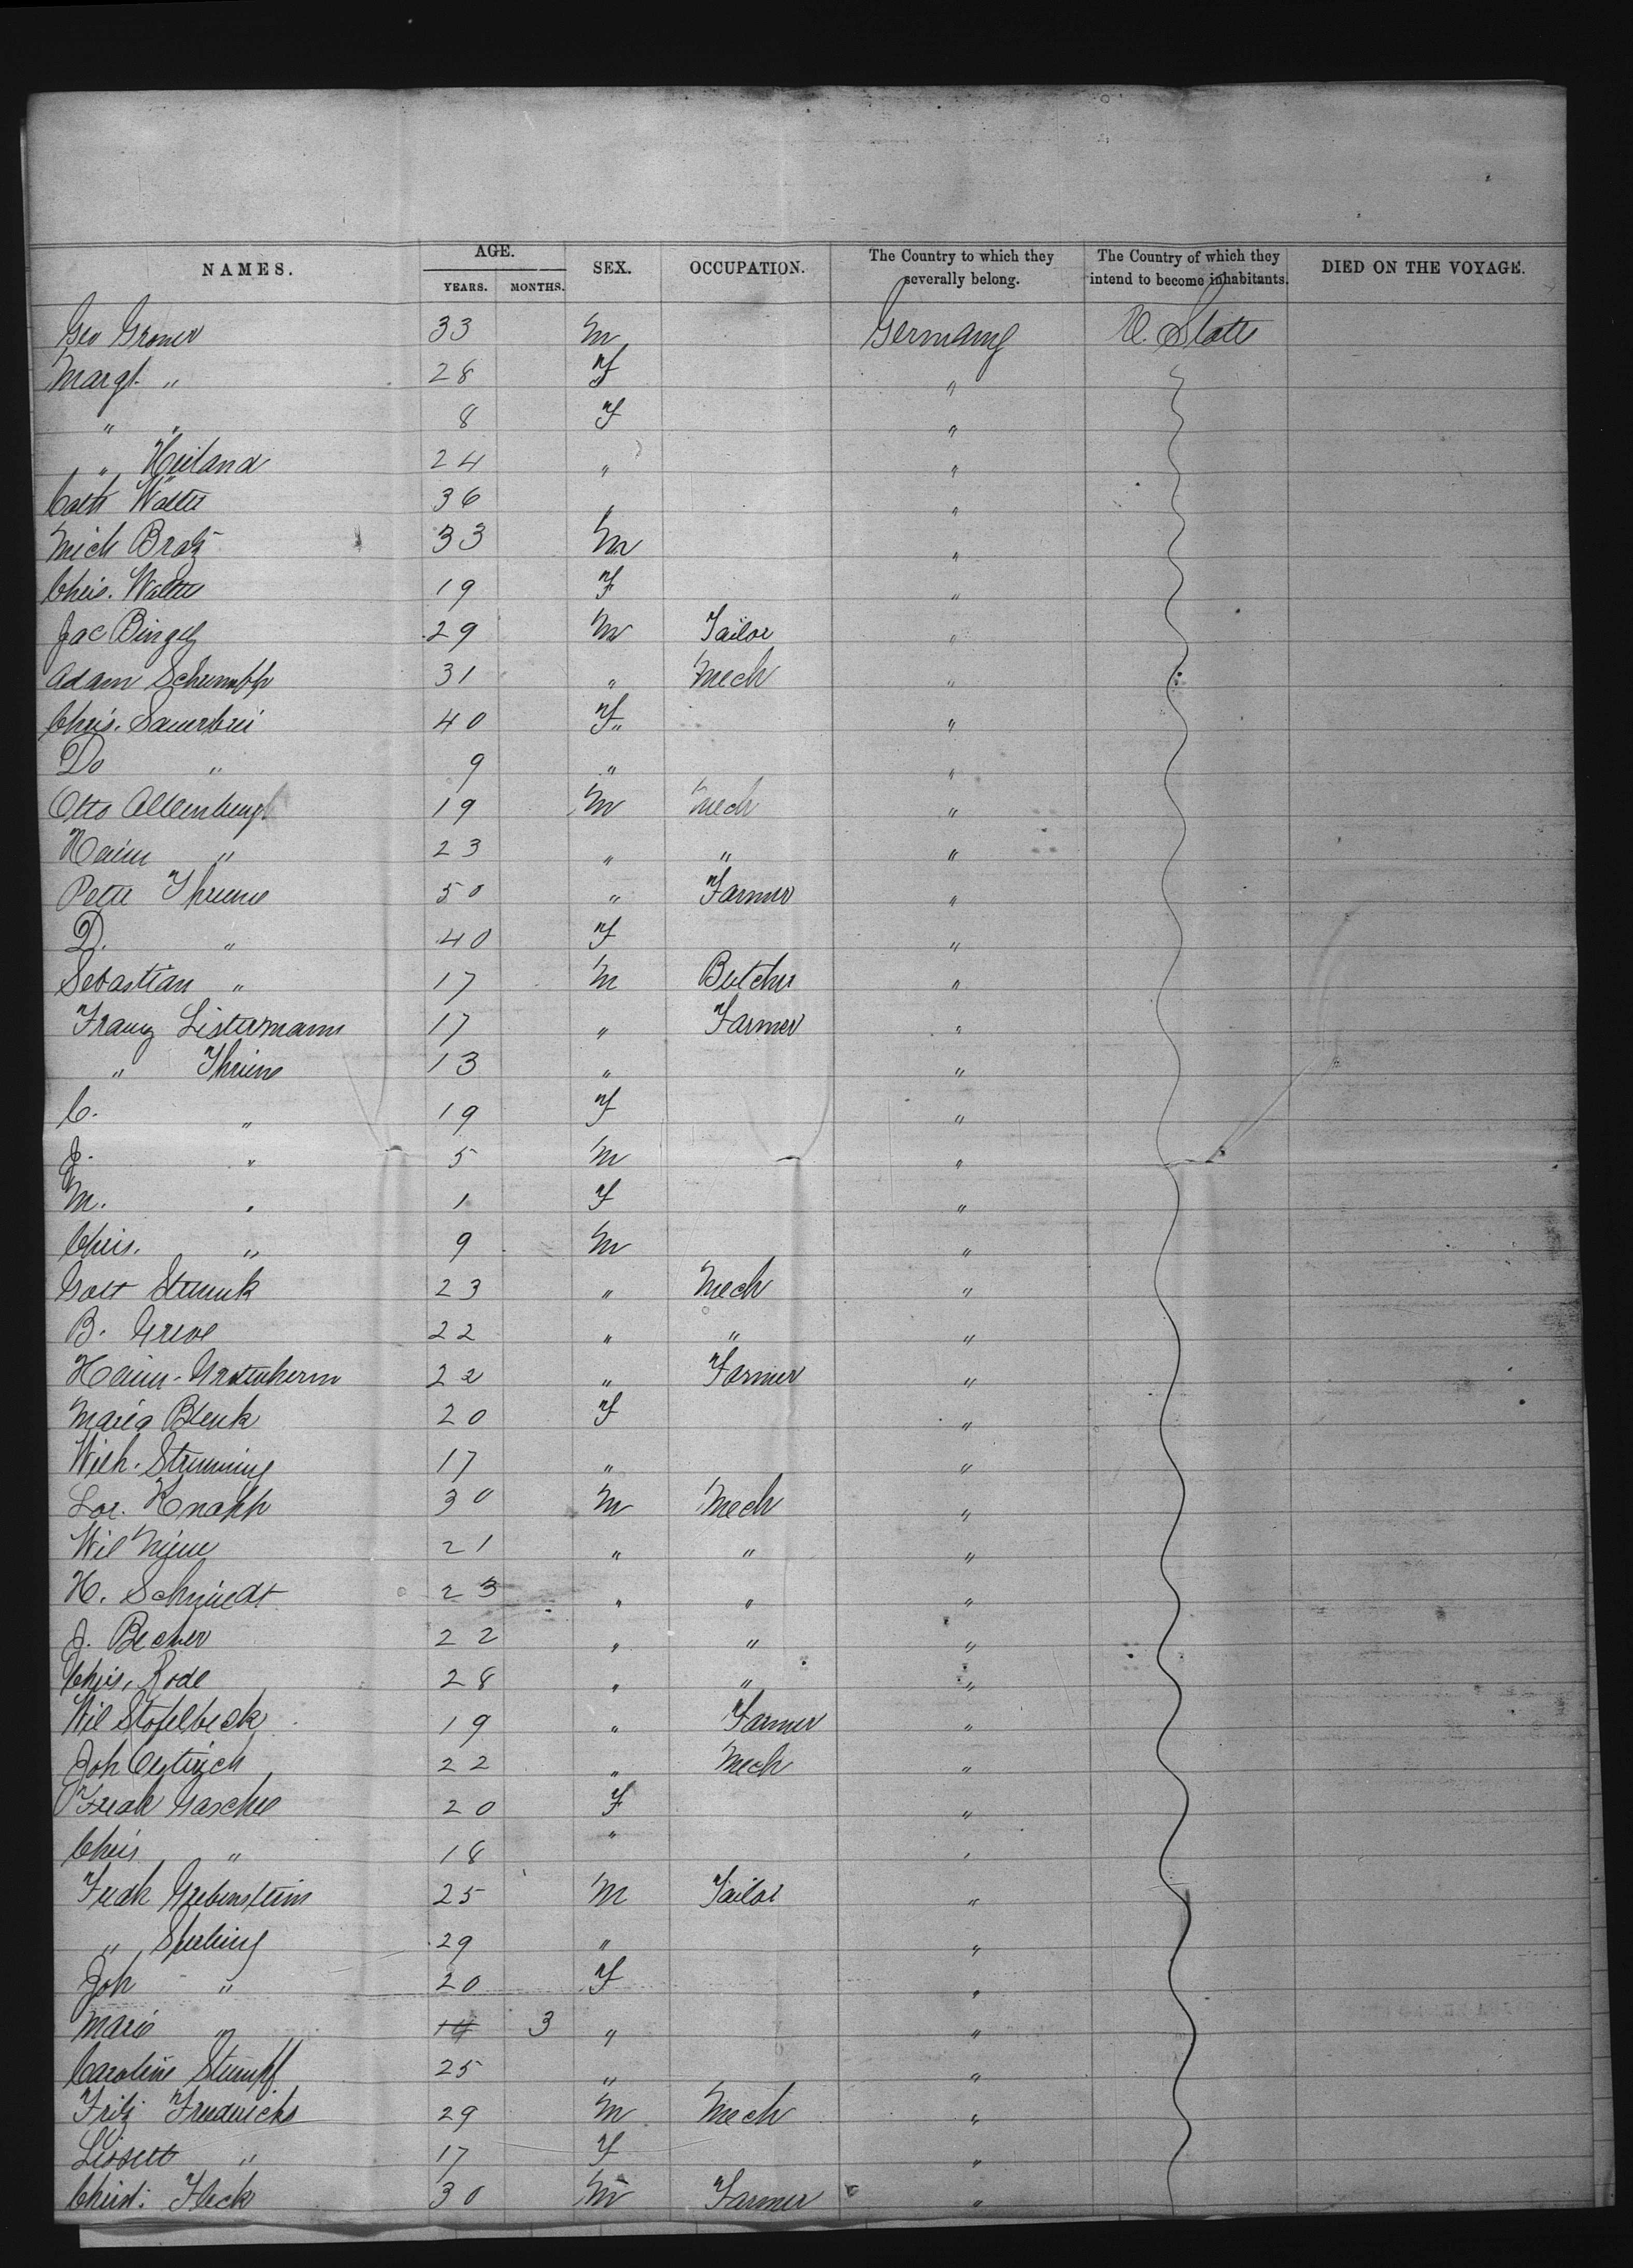 NAMES. AGE. YEARS. MONTHS. SEX. OCCUPATION. The Country to which they severally belong. The Country of which they intend to become inhabitants. DIED ON THE VOYAGE.
Geo Groner 33 M Germany U. States
Margt. " 28 F "
" " 8 F "
" Heiland 24 " "
Cath Walter 36 " "
Mich Bratz 33 M "
Chris. Walter 19 F "
Jac 29 M Tailor "
Adam Schumpp 31 " Mech "
Chris. Sauerbrei 40 F " "
Do " 9 " "
Otto 19 M Mech "
Heinr " 23 " " "
Peter Threine 50 " Farmer "
D. " 40 F "
Sebastian " 17 M Butcher "
Franz Listermann 17 " Farmer "
" Threine 13 " "
C. " 19 F "
J. " 5 M "
M. " 1 F "
Chris. " 9 M "
Gott Strunk 23 " Mech "
B. Greve 22 " " "
Heinr. Grotenherm 22 " Farmer "
Maria Blenk 20 F "
Wilh. 17 " "
Lor. Knapp 30 M Mech "
Wil 21 " " "
H. Schmiedt 23 " " "
J. Becher 22 " " "
Chris. Rode 28 " " "
Wil Stofelbeck 19 " Farmer "
Joh 22 " Mech "
Fredk Gaschel 20 F "
Chris " 18 " "
Fredk Grebenstein 25 M Tailor "
" Sperling 29 " "
Joh " 20 F "
Marie " 3 " "
Caroline Stumpf 25 " "
Fritz Fredericks 29 M Mech "
Lissett " 17 F "
Christ: Fleck 30 M Farmer "